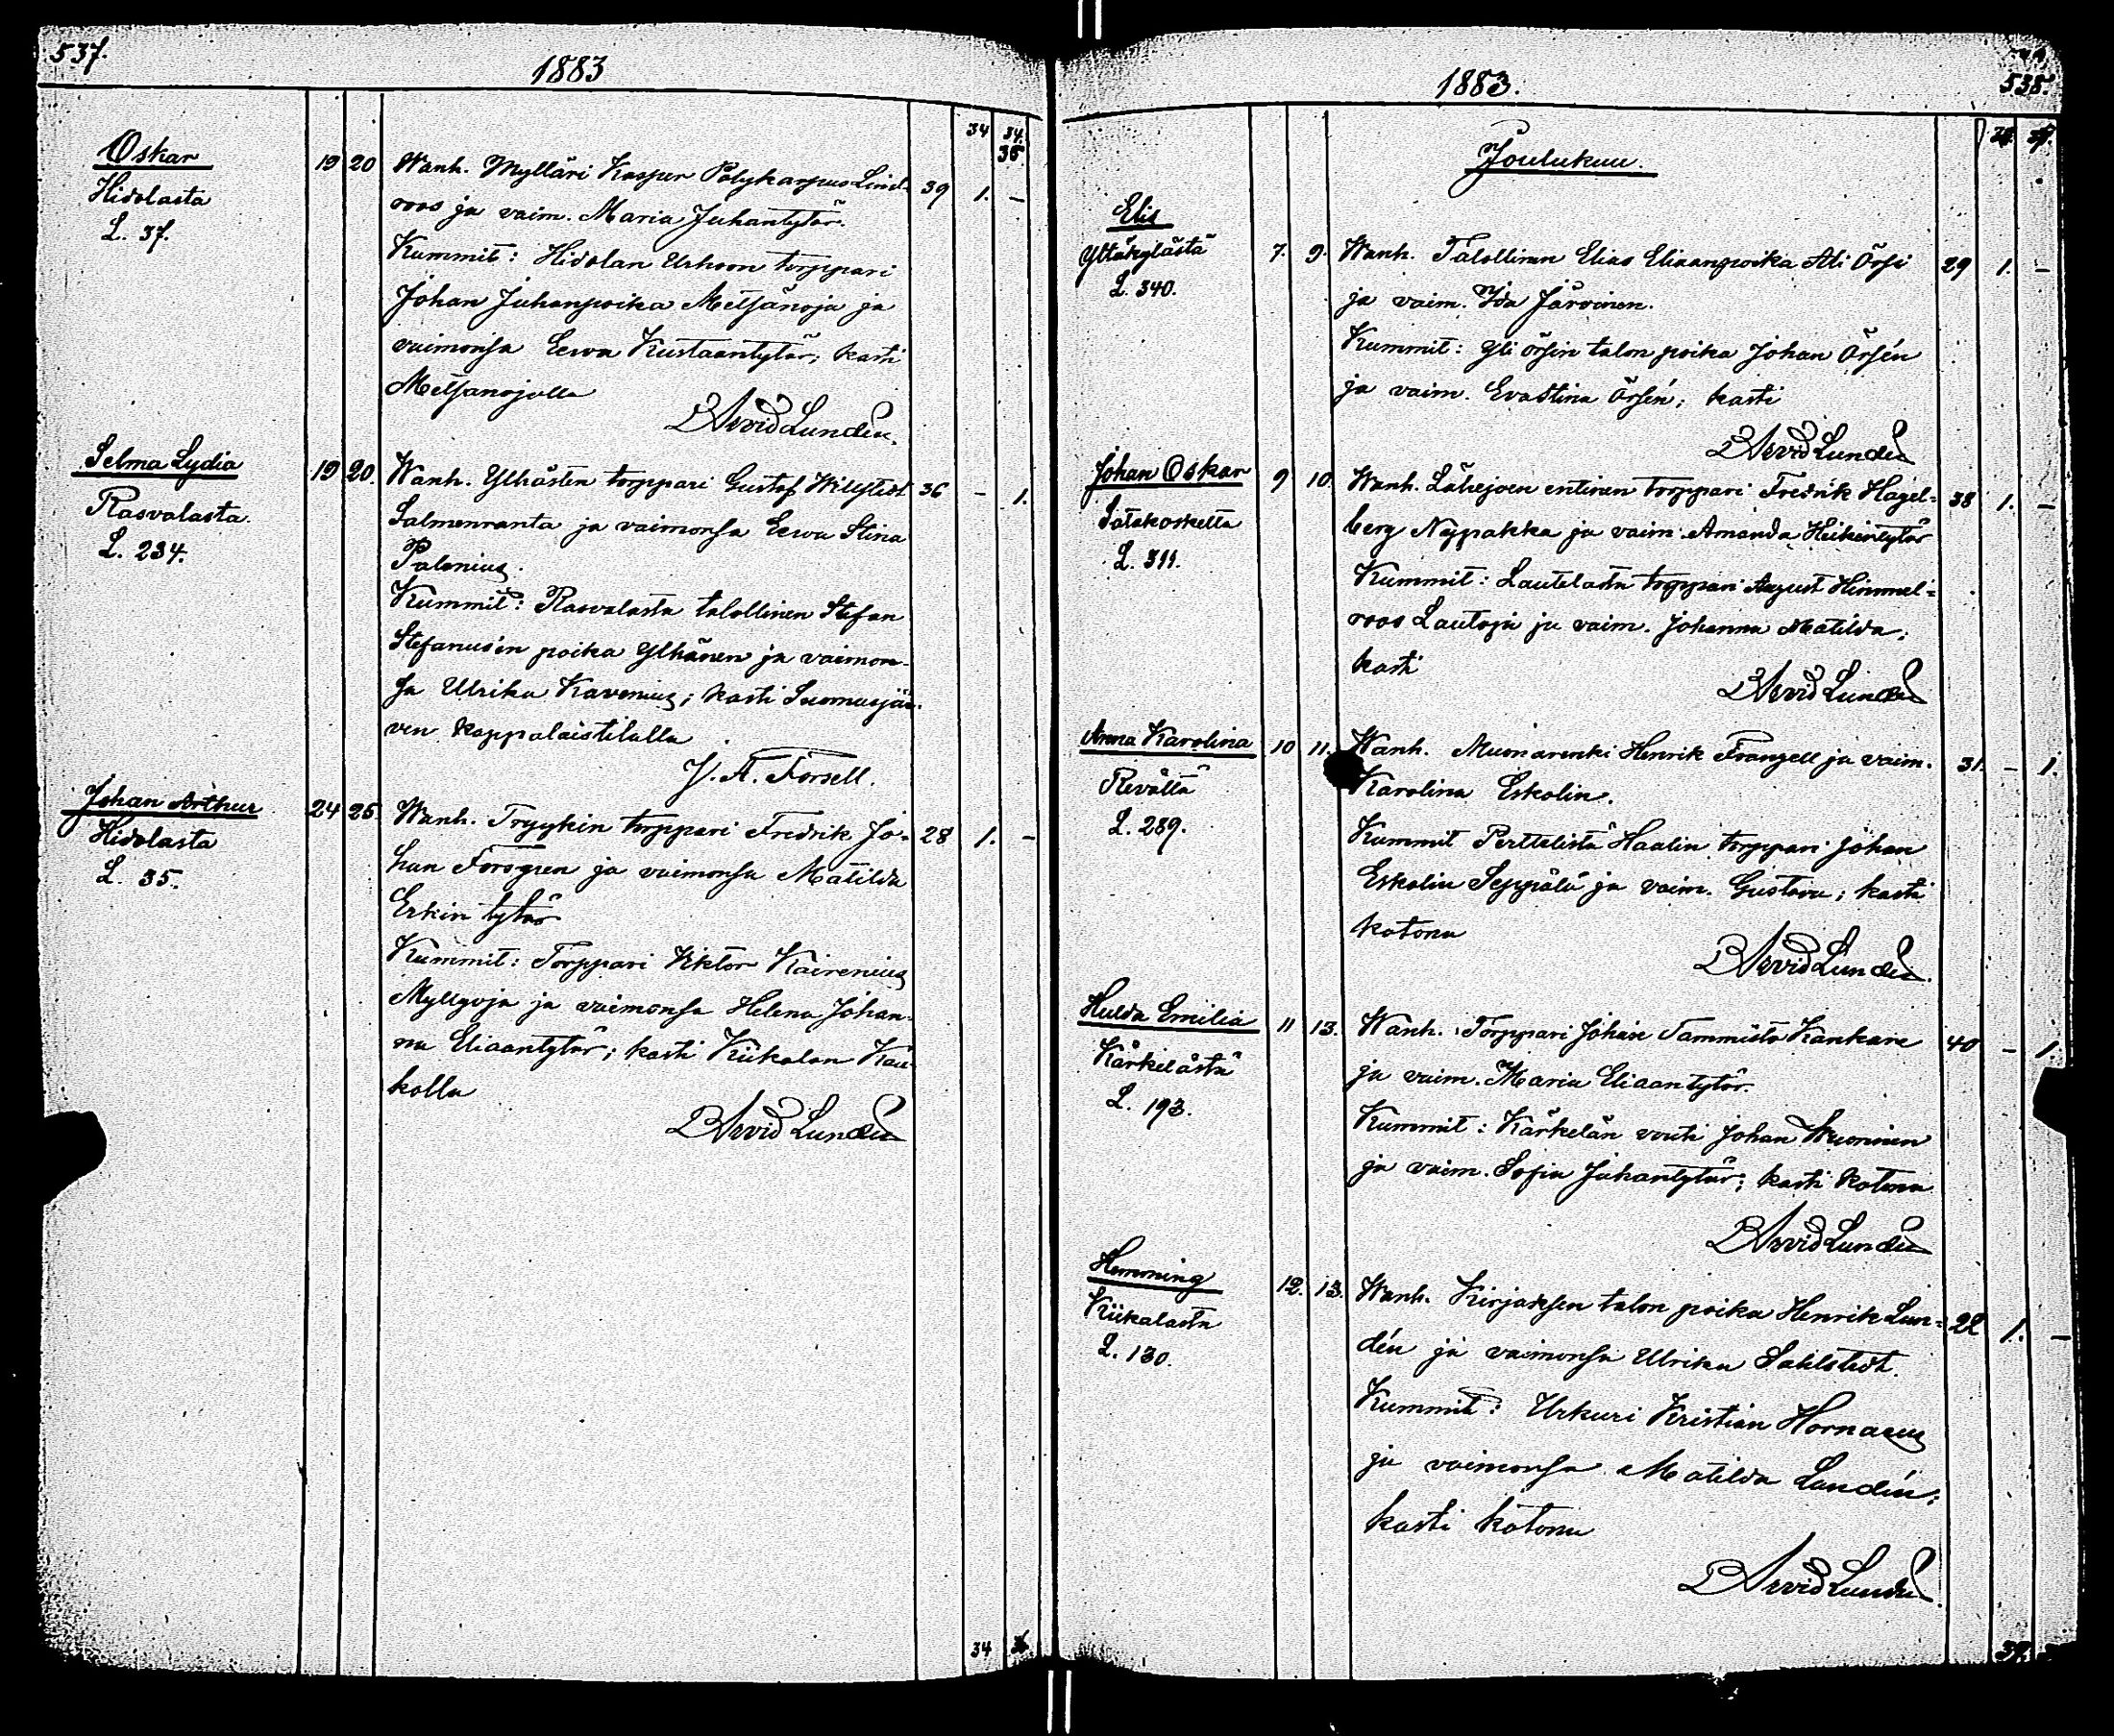 537.
1883
34 34.
35
Oskar
Hidolasta
L. 37.
19 20 Wanh. Mylläri Kasper Polykarpus Lind-
roos ja vaim. Maria Juhantytär.
39 1. –
Kummit: Hidolan Urhoon torppari
Johan Juhanpoika Metsänoja ja
vaimonsa Eewa Kustaantytär; kasti
Metsänojalla
Arvid Lundén.
Selma Lydia
Rasvalasta.
L. 234.
19 20. Wanh. Ylhästen torppari Gustaf Willstedt
36 – 1.
Salmenranta ja vaimonsa Eewa Stina
Palenius.
Kummit: Rasvalasta talollinen Stefan
Stefanusin poika Ylhänen ja vaimon-
sa Ulrika Kavenius; kasti Suomusjär-
ven kappalaistilalla
J. A. Forsell.
Johan Arthur
Hidolasta
L. 35.
24 25. Wanh. Tryykin torppari Fredrik Jo-
28 1. –
han Forsgren ja vaimonsa Matilda
Erkin tytär
Kummit: Torppari Viktor Kairenius
Myllyoja ja vaimonsa Helena Johan-
na Eliaantytär; kasti Kiikalan Kau-
kolla
Arvid Lundén
34
1883.
535.
Joulukuu.
Elis
Yltäkylästä
L. 340.
7. 9. Wanh. Talollinen Elias Eliaanpoika Ali Örsi
29 1. –
ja vaim. Ida Järvinen.
Kummit: Yli örsin talon poika Johan Örsén
ja vaim. Evastina Örsén; kasti
Arvid Lundén
Johan Oskar
Satakoskelta
L. 311.
9 10 Wanh. Lähejoen entinen torppari Fredrik Hagel-
38 1. –
berg Nypakka ja vaim. Amanda Heikintytär
Kummit: Lautelasta torppari August Himmel-
roos Lautoja ja vaim. Johanna Matilda;
kasti
Arvid Lundén
Anna Karolina
Revältä
L. 289.
10 11. Wanh. Muonarenki Henrik Franzell ja vaim.
31. – 1.
Karolina Eskolin.
Kummit Perttelistä Haalin torppari Johan
Eskolin Seppälä ja vaim. Gustava; kasti
kotona
Arvid Lundén.
Hulda Emilia
Kärkelästä
L. 193.
11 13. Wanh. Torppari Johan Tammisto Kankare
40 – 1.
ja vaim. Maria Eliaantytär.
Kummit: Kärkelän vouti Johan Wuorinen
ja vaim. Sofia Juhantytär; kasti kotona
Arvid Lundén
Hemming
Kiikalasta
L. 130.
12. 13. Wanh. Kirjaksen talon poika Henrik Lun-
22 1. –
dén ja vaimonsa Ulrika Sahlstedt.
Kummit: Urkuri Kristian Hornaeus
ja vaimonsa Matilda Lundén;
kasti kotona
Arvid Lundén